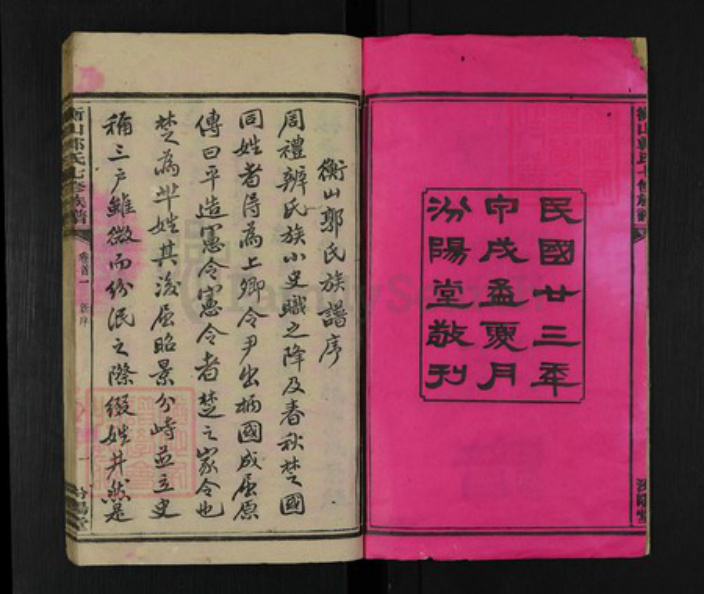 民國廿三年
甲戌孟夏月
汾陽堂敬刊
衡山郭氏族譜序
周禮辨氏族小史職之降及春秋楚國
同姓者得為上卿令尹出柄國成屈原
傳曰平造憲令憲令者楚之家令也
楚為芈姓其後屈昭景分峙並立史
稱三户雖微而紛泯之際綴姓井然是
衡山郭氏七修族譜
卷首一
汾陽堂